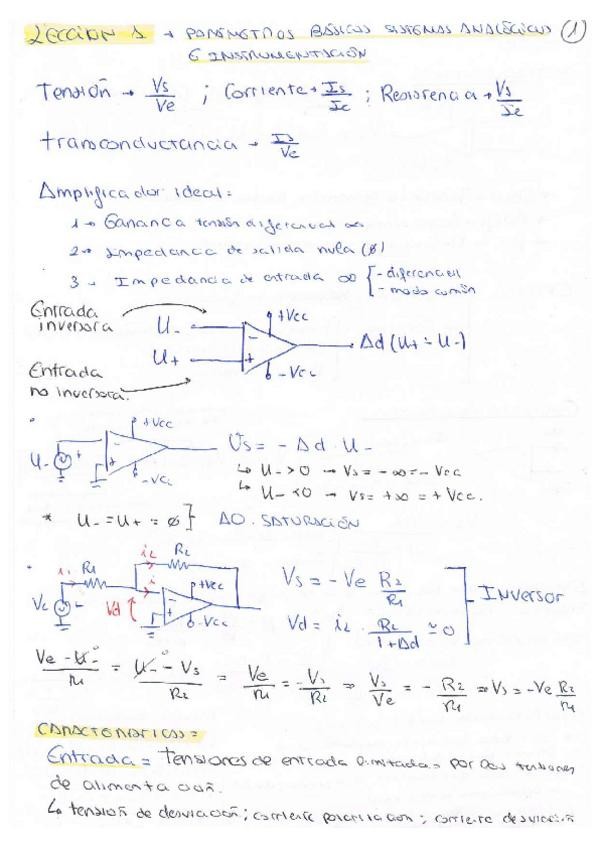 LECCION 1 → PARÁMETROS BÁSICOS SISTEMAS ANALÓGICOS (1)
E INSTRUMENTACIÓN
Tensión → Vs/Ve ; Corriente → Is/Ie ; Resistencia → Vs/Ie
transconductancia → Is/Ve
Amplificador ideal:
1 → Ganancia tensión diferencial ∞
2 → Impedancia de salida nula (Ø)
3 → Impedancia de entrada ∞ { - diferencial
- modo común
Entrada inversora
U-
+Vcc
U+
Ad (U+ - U-)
-Vcc
Entrada no inversora.
+Vcc
U-
-Vcc
Us = - Ad · U-
↳ U- > 0 → Vs = -∞ = -Vcc
↳ U- < 0 → Vs = +∞ = +Vcc.
* U- = U+ = Ø } AO. SATURACIÓN
i1 R1 i2 R2
i
+Vcc
Ve Vd
-Vcc
Vs = -Ve R2/R1
Vd = i2 · R2/(1+Ad) ≃ 0
] INVERSOR
(Ve - U-)/R1 = (U- - Vs)/R2 = Ve/R1 = -Vs/R2 ⇒ Vs/Ve = - R2/R1 ⇒ Vs = -Ve R2/R1
CARACTERÍSTICAS =
Entrada = Tensiones de entrada limitadas por las tensiones
de alimentación.
↳ tensión de desviación; corriente polarización; corriente desviación